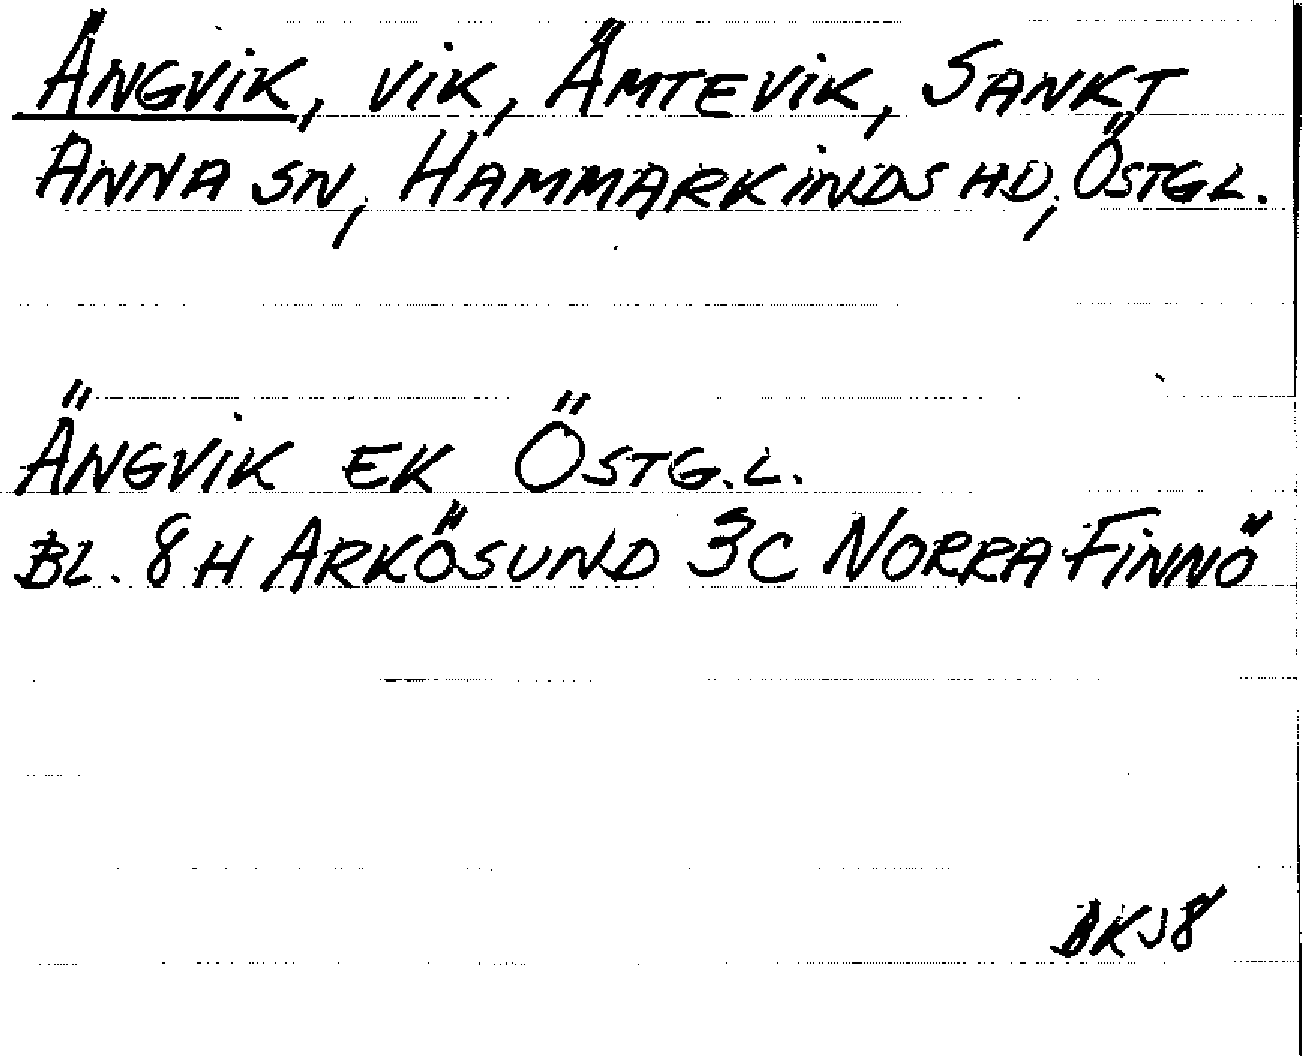 ÄNGVIK, VIK, ÄMTEVIK, SANKT
ANNA SN, HAMMARKINDS HD, ÖSTGL.
ÄNGVIK EK ÖSTG.L.
BL. 8H ARKÖSUND 3C NORRA FINNÖ